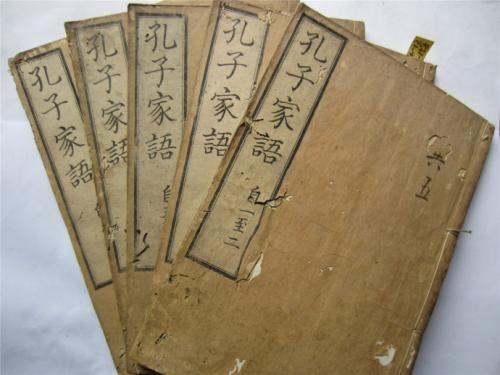 孔子家語
孔子家語
孔子家語 自
孔子家語
孔子家語 自一至二
共五